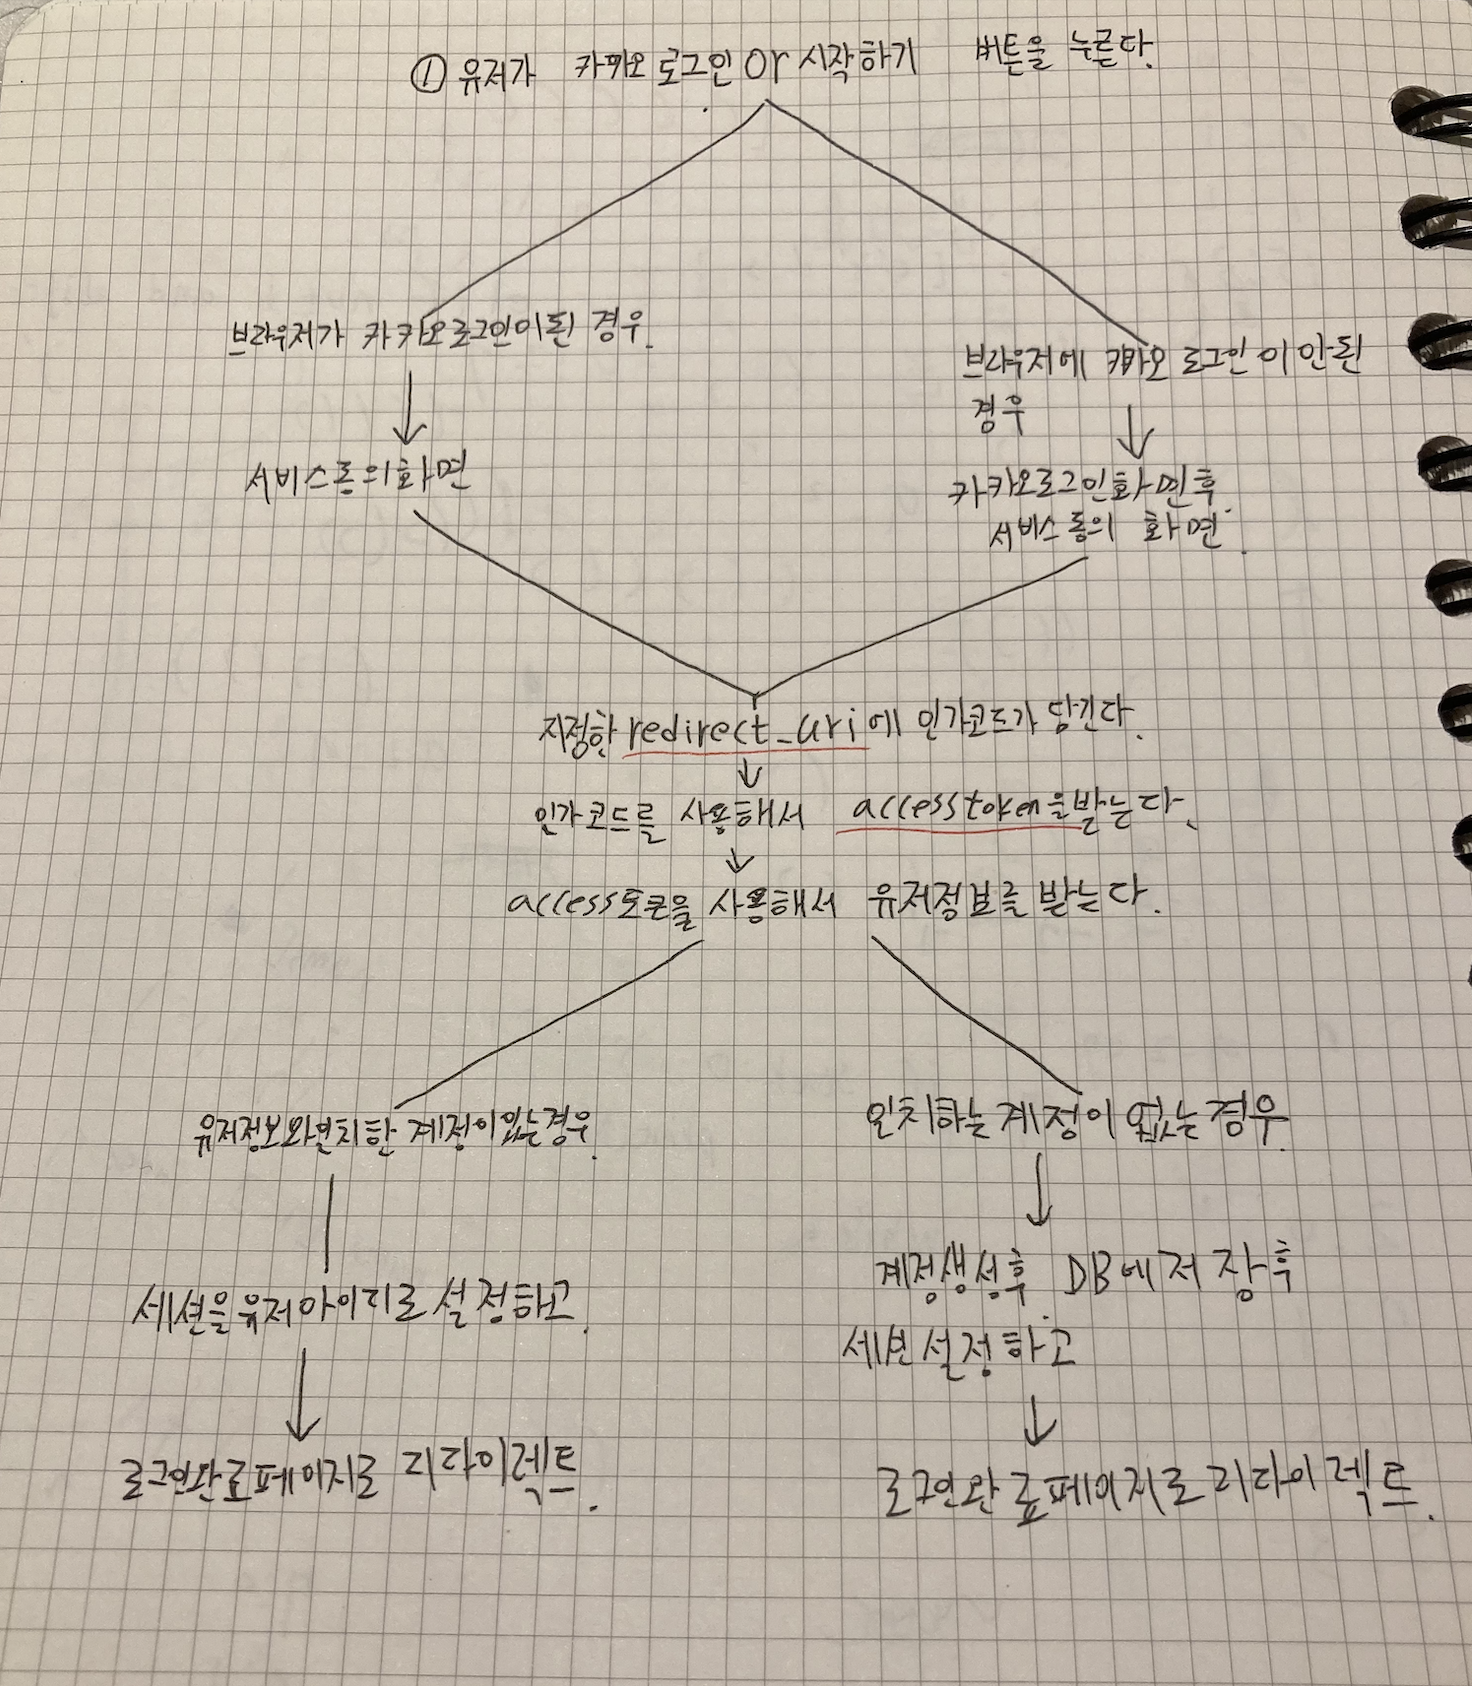 ① 유저가 카카오 로그인 or 시작하기 버튼을 누른다.
브라우저가 카카오로그인이된 경우.
브라우저에 카카오 로그인이 안된
경우
서비스동의화면
카카오로그인화면후
서비스동의 화면.
지정한 redirect_uri에 인가코드가 담긴다.
인가코드를 사용해서 access token을받는다.
access토큰을 사용해서 유저정보를 받는다.
유저정보와일치한 계정이있는경우.
일치하는 계정이 없는 경우.
계정생성후 DB에저장후
세션을유저아이디로 설정하고.
세션설정하고
로그인완료페이지로 리다이렉트.
로그인완료페이지로 리다이렉트.